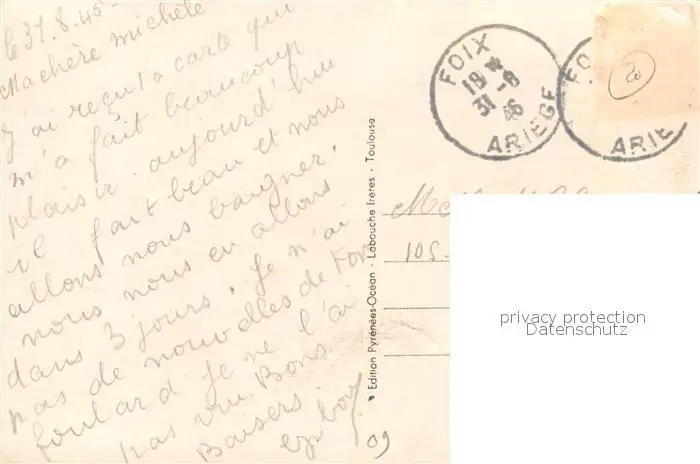 le 31.8.45
Machère michèle
J'ai reçu ta carte qui
m'a fait beaucoup
plaisir. aujourd'hui
il fait beau et nous
allons nous baigner.
nous nous en allons
dans 3 jours. Je n'ai
pas de nouvelles de ton
foulard je ne l'ai
pas vu. Bons
Baisers
Edition Pyrénées-Océan - Labouche frères - Toulouse
FOIX
18 H
31-8
ARIEGE
FO
ARIE
105
09
privacy protection
Datenschutz